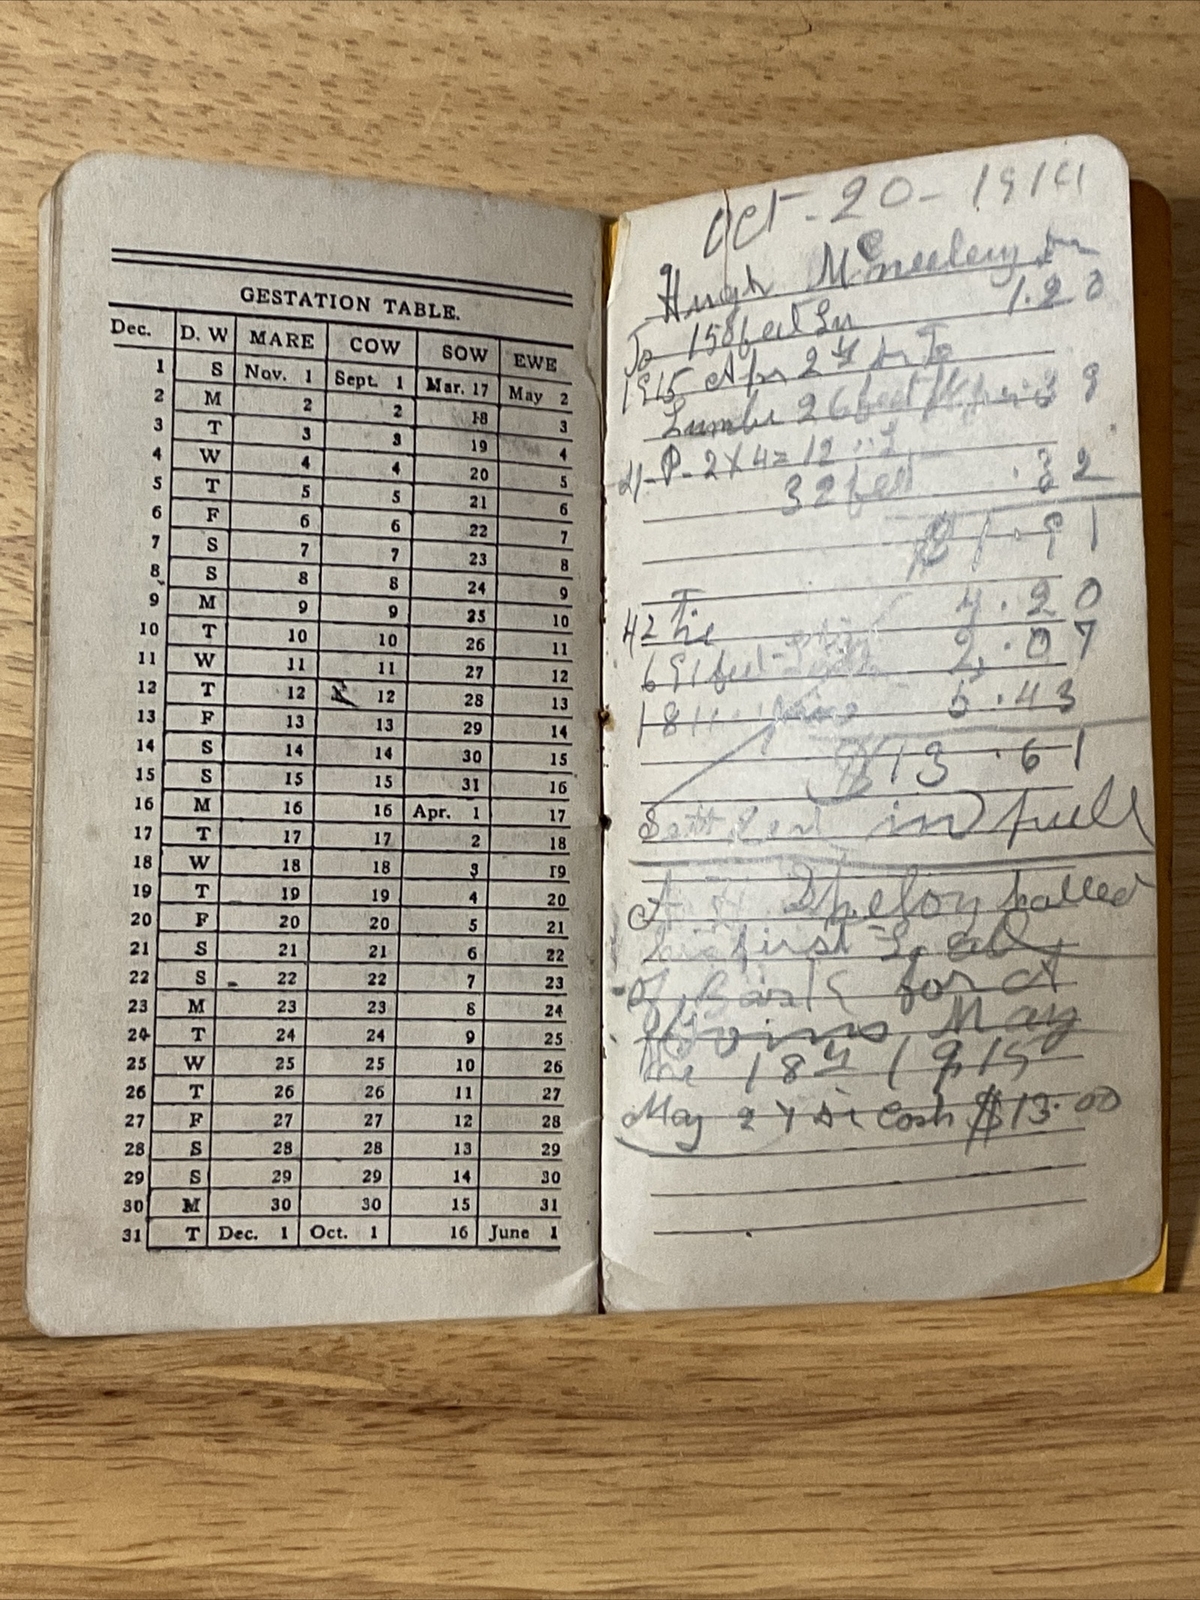 GESTATION TABLE.
Dec. D. W MARE COW SOW EWE
1 S Nov. 1 Sept. 1 Mar. 17 May 2
2 M 2 2 18 3
3 T 3 3 19 4
4 W 4 4 20 5
5 T 5 5 21 6
6 F 6 6 22 7
7 S 7 7 23 8
8 S 8 8 24 9
9 M 9 9 25 10
10 T 10 10 26 11
11 W 11 11 27 12
12 T 12 12 28 13
13 F 13 13 29 14
14 S 14 14 30 15
15 S 15 15 31 16
16 M 16 16 Apr. 1 17
17 T 17 17 2 18
18 W 18 18 3 19
19 T 19 19 4 20
20 F 20 20 5 21
21 S 21 21 6 22
22 S 22 22 7 23
23 M 23 23 8 24
24 T 24 24 9 25
25 W 25 25 10 26
26 T 26 26 11 27
27 F 27 27 12 28
28 S 28 28 13 29
29 S 29 29 14 30
30 M 30 30 15 31
31 T Dec. 1 Oct. 1 16 June 1
Oct - 20 - 1914
Hugh McNeeleey Dr
To 158 feet Lu 1.20
1915 Apr 2 Dr To
Lumbr 26 feet 39
4-P-2X4=12
32 feet .32
$1.91
42 Tie 4.20
691 feet 2.07
1811 5.43
$13.61
in full
A Sheloy halled
his first Load
of Bark for A
May
the 18 1915
May 24 Dr Cash $13.00